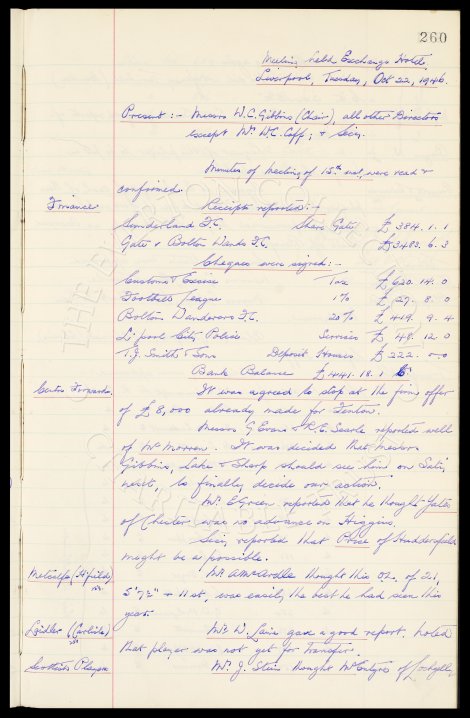 260
Meeting held Exchange Hotel,
Liverpool, Tuesday, Oct 22, 1946.
Present :- Messrs W.C. Gibbins (Chair), all other Directors
except Mr W.C. Cuff, & Secy.
Minutes of meeting of 15th inst, were read &
confirmed.
Finance Receipts reported :-
Sunderland F.C. Share Gate £ 3814. 1. 1
Gate v Bolton Wands F.C. £3483. 6. 3
Cheques were signed :-
Customs & Excise Tax £ 620. 14. 0
Football League 1% £ 29. 8. 0
Bolton Wanderers F.C. 20% £ 419. 9. 4
L'pool City Police Services £ 48. 12. 0
T.J. Smith & Sons Deposit Houses £ 222. 0. 0
Bank Balance £ 4141. 18. 1
Centre Forwards. It was agreed to stop at the firm offer
of £8,000 already made for Fenton.
Messrs G. Evans & R.E. Searle reported well
of McMorran. It was decided that Messrs
Gibbins, Lake & Sharp should see him on Sat.
next, to finally decide our action.
Mr E. Green reported that he thought Yates
of Chester was no advance on Higgins.
Secy reported that Price of Huddersfield
might be a possible.
Metcalfe Mr A. McArdle thought this O.L. of 21,
5' 7½" & 11 st, was easily the best he had seen this
year.
Laidler (Carlisle) Mr W. gave a good report. Noted
that player was not yet for transfer.
Scottish Players Mr J. Stein thought McIntyre of Lochgelly